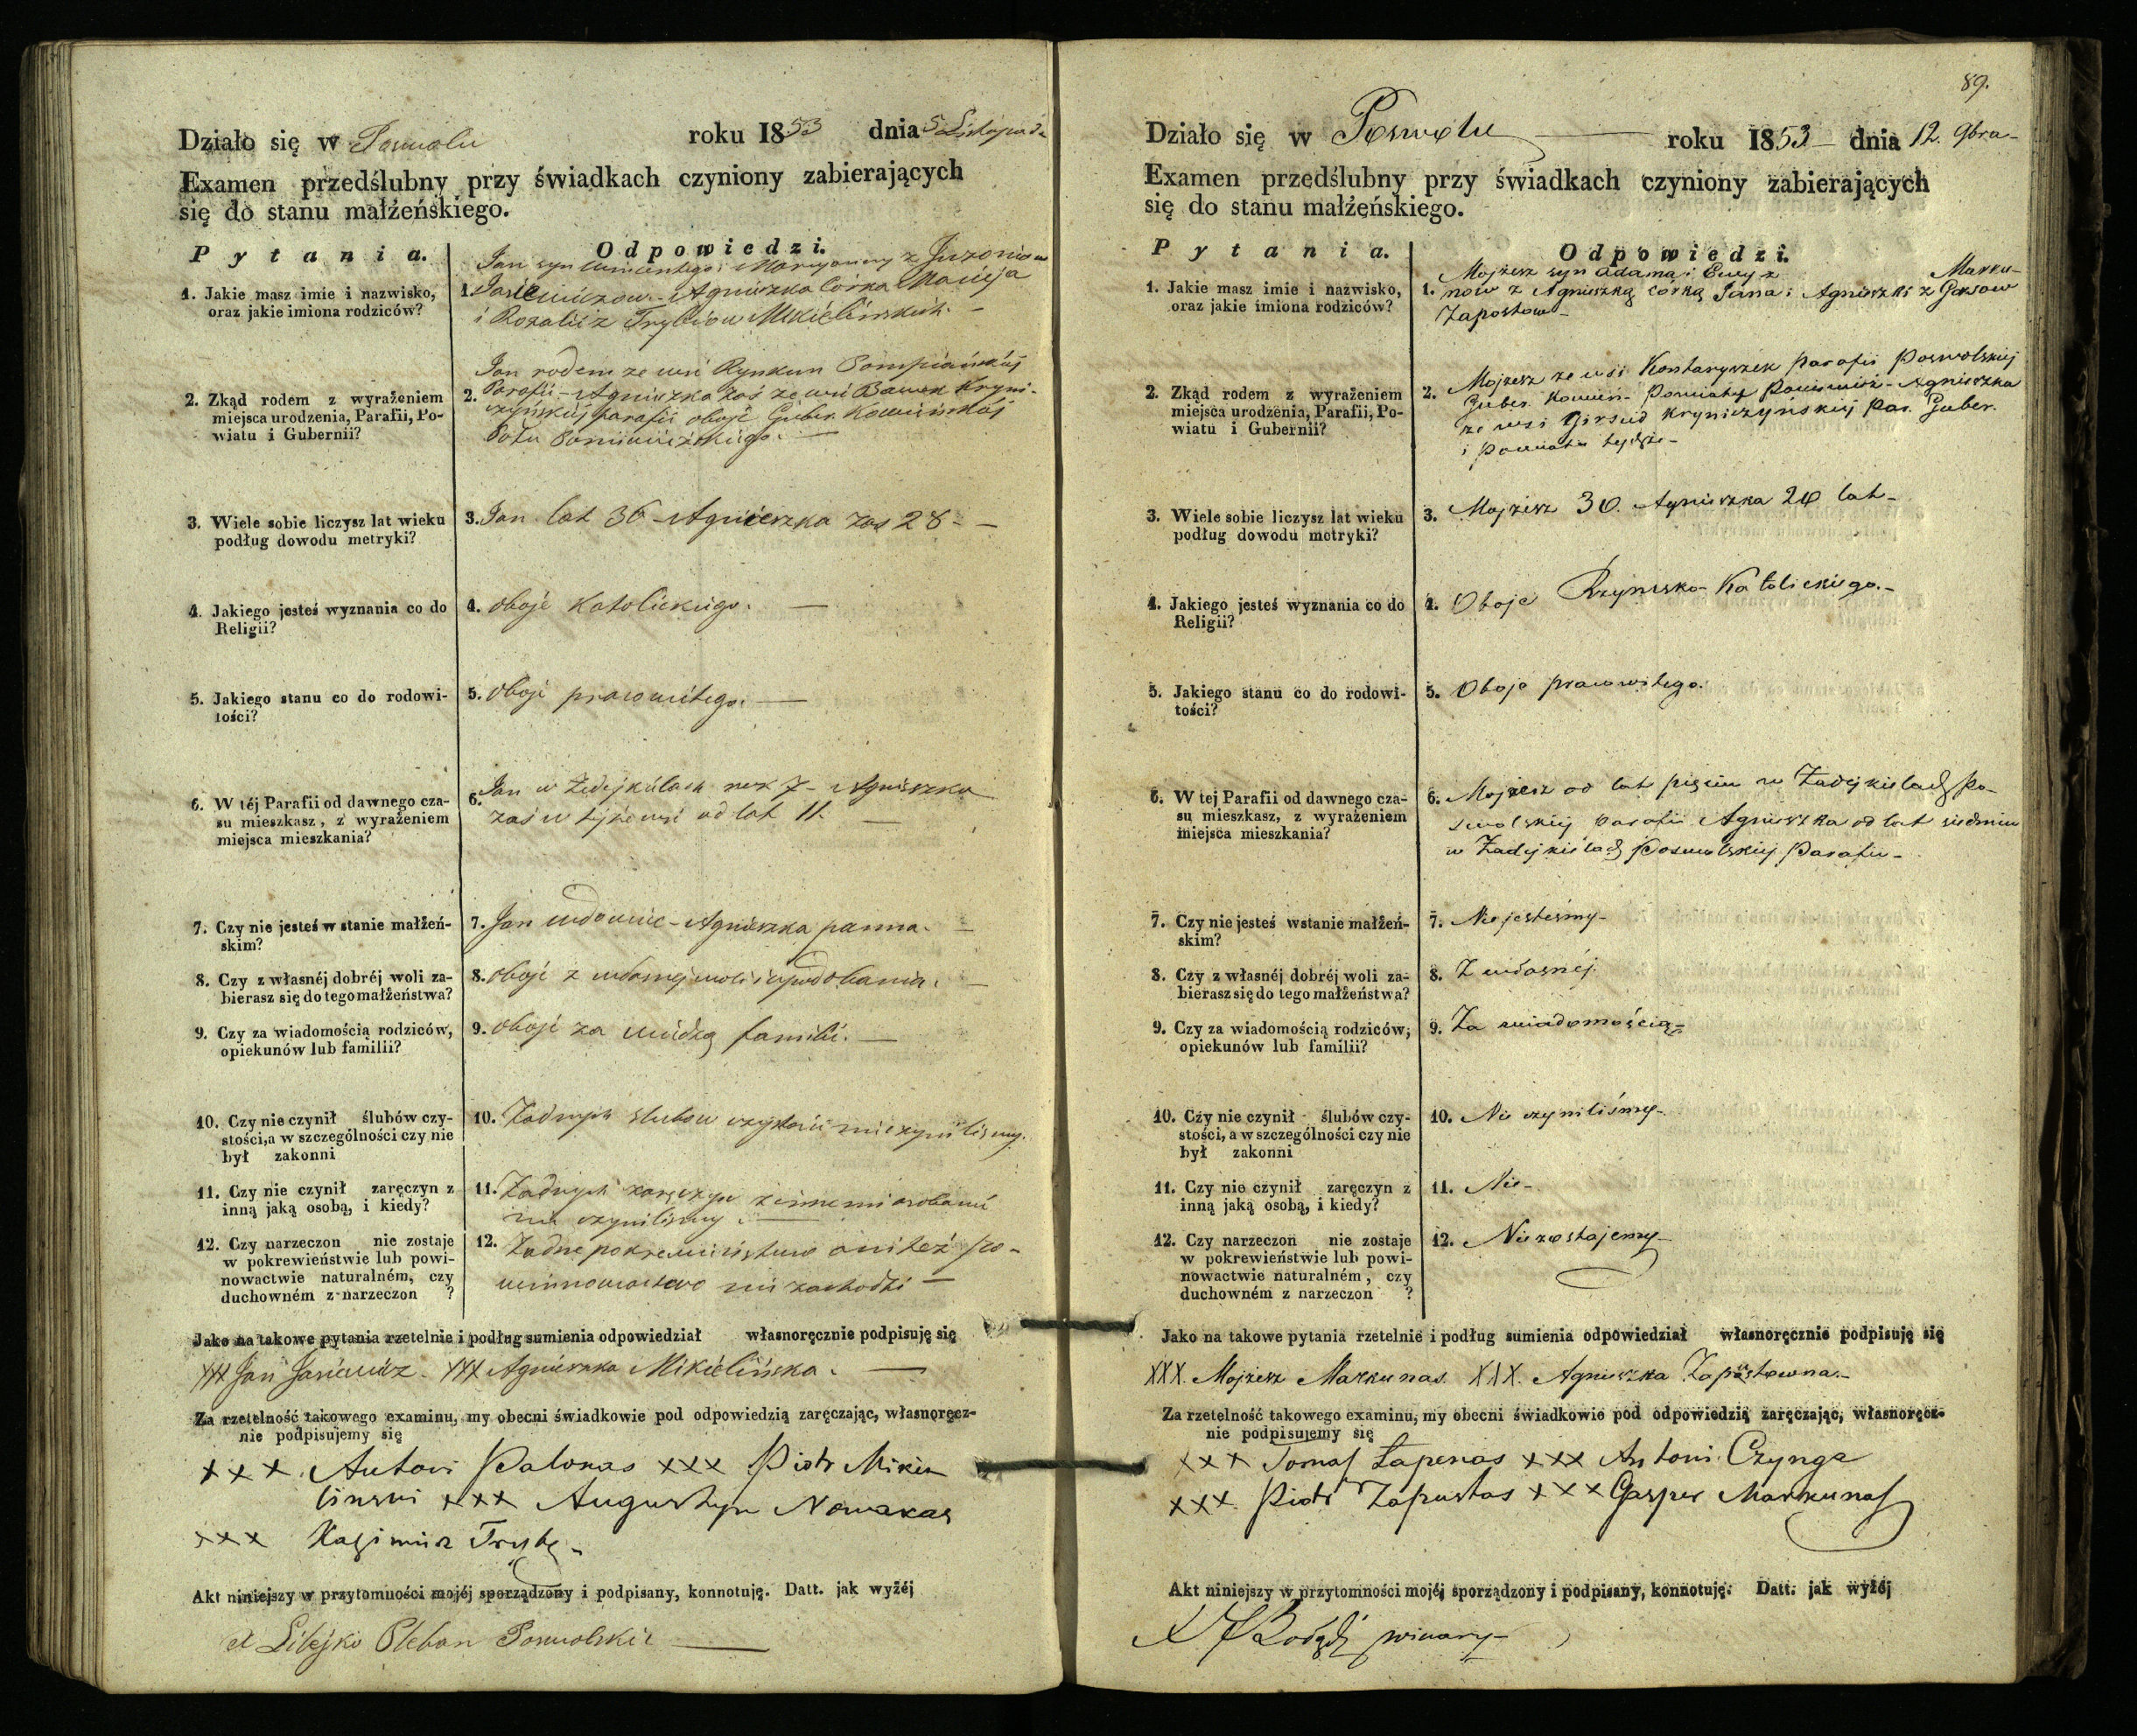 Działo się w Poswolu roku 1853 dnia 5 Listopada
Examen przedślubny przy świadkach czyniony zabierających
się do stanu małżeńskiego.
Pytania. Odpowiedzi.
1. Jakie masz imie i nazwisko,
oraz jakie imiona rodziców?
Jan syn Wincentego i Maryanny z
1. Agnieszka Córka Macieja
i Rozalii z Trybiów
2. Zkąd rodem z wyrażeniem
miejsca urodzenia, Parafii, Po-
wiatu i Gubernii?
Jan rodem ze wsi Rynkun Pompiańskiej
2. Parafii – Agnieszka zaś ze wsi Kryni-
czyńskiej parafii oboje Guber. Kowieńskiej
Potu Poniewieżskiego. —
3. Wiele sobie liczysz lat wieku
podług dowodu metryki?
3. Jan lat 36 – Agnieszka zas 28 –
4. Jakiego jesteś wyznania co do
Religii?
4. oboje Katolickiego. —
5. Jakiego stanu co do rodowi-
tości?
5. oboje prawowitego. —
6. W téj Parafii od dawnego cza-
su mieszkasz, z wyrażeniem
miejsca mieszkania?
6. Jan w Żedejkielach rok 7 – Agnieszka
zaś w tejże wsi od lat 11. —
7. Czy nie jesteś w stanie małżeń-
skim?
7. Jan wdowiec – Agnieszka panna. –
8. Czy z własnéj dobréj woli za-
bierasz się do tego małżeństwa?
8. oboje z własnej woli i upodobania. –
9. Czy za wiadomością rodziców,
opiekunów lub familii?
9. oboje za wiedzą familii. —
10. Czy nie czynił ślubów czy-
stości, a w szczególności czy nie
był zakonni
10. Żadnych slubow czystości nieczynilismy.
11. Czy nie czynił zaręczyn z
inną jaką osobą, i kiedy?
11. Żadnych zaręczyn z innemi osobami
nie czynilismy. —
12. Czy narzeczon nie zostaje
w pokrewieństwie lub powi-
nowactwie naturalném, czy
duchowném z narzeczon ?
12. Żadne pokrewieństwo ani też po-
winnowactwo nie zachodzi —
Jako na takowe pytania rzetelnie i podług sumienia odpowiedział własnoręcznie podpisuję się
XXX Jan Jasiewicz. XXX Agnieszka Mikielińska. —
Za rzetelność takowego examinu, my obecni świadkowie pod odpowiedzią zaręczając, własnoręcz-
nie podpisujemy się
xxx. Antoni Palonas xxx Piotr Mikie-
linski xxx Augustyn Nowakas
xxx Kazimierz Tryb
Akt niniejszy w przytomności mojéj sporządzony i podpisany, konnotuję. Datt. jak wyżéj
Pleban Poswolski —
89.
Działo się w Poswolu — roku 1853 – dnia 12. 9bra –
Examen przedślubny przy świadkach czyniony zabierających
się do stanu małżeńskiego.
Pytania. Odpowiedzi.
1. Jakie masz imie i nazwisko,
oraz jakie imiona rodziców?
Mojżesz syn Adama i Ewy z Marku-
1. nów z Agnieszką córką Jana i Agnieszki z
Zapostow –
2. Zkąd rodem z wyrażeniem
miejsca urodzenia, Parafii, Po-
wiatu i Gubernii?
2. Mojżesz ze wsi Kontaryszek Parafii Poswolskiej
Guber. Kowień. Powiatu Poniewież – Agnieszka
ze wsi Girsud Kryniczyńskiej Par. Guber.
i Powiatu tejże –
3. Wiele sobie liczysz lat wieku
podług dowodu metryki?
3. Mojżesz 30. Agnieszka 20 lat –
4. Jakiego jesteś wyznania co do
Religii?
4. Oboje Rzymsko-Katolickiego. –
5. Jakiego stanu co do rodowi-
tości?
5. Oboje prawowitego.
6. W tej Parafii od dawnego cza-
su mieszkasz, z wyrażeniem
miejsca mieszkania?
6. Mojżesz od lat pięciu w Żadejkielach Po-
swolskiej Parafii Agnieszka od lat siedmiu
w Żadejkielach Poswolskiej Parafii –
7. Czy nie jesteś wstanie małżeń-
skim?
7. Nie jesteśmy –
8. Czy z własnéj dobréj woli za-
bierasz się do tego małżeństwa?
8. Z własnéj.
9. Czy za wiadomością rodziców,
opiekunów lub familii?
9. Za wiadomością –
10. Czy nie czynił ślubów czy-
stości, a w szczególności czy nie
był zakonni
10. Nie czyniliśmy –
11. Czy nie czynił zaręczyn z
inną jaką osobą, i kiedy?
11. Nie –
12. Czy narzeczon nie zostaje
w pokrewieństwie lub powi-
nowactwie naturalném, czy
duchowném z narzeczon ?
12. Nie zostajemy –
Jako na takowe pytania rzetelnie i podług sumienia odpowiedział własnoręcznie podpisuję się
XXX. Mojżesz Markunas. XXX. Agnieszka Zapustowna. –
Za rzetelność takowego examinu, my obecni świadkowie pod odpowiedzią zaręczając, własnoręcz-
nie podpisujemy się
xxx Tomasz Łapenas xxx Antoni Czynga
xxx Piotr Zapustas xxx Gasper Markunas
Akt niniejszy w przytomności mojéj sporządzony i podpisany, konnotuję. Datt. jak wyżéj